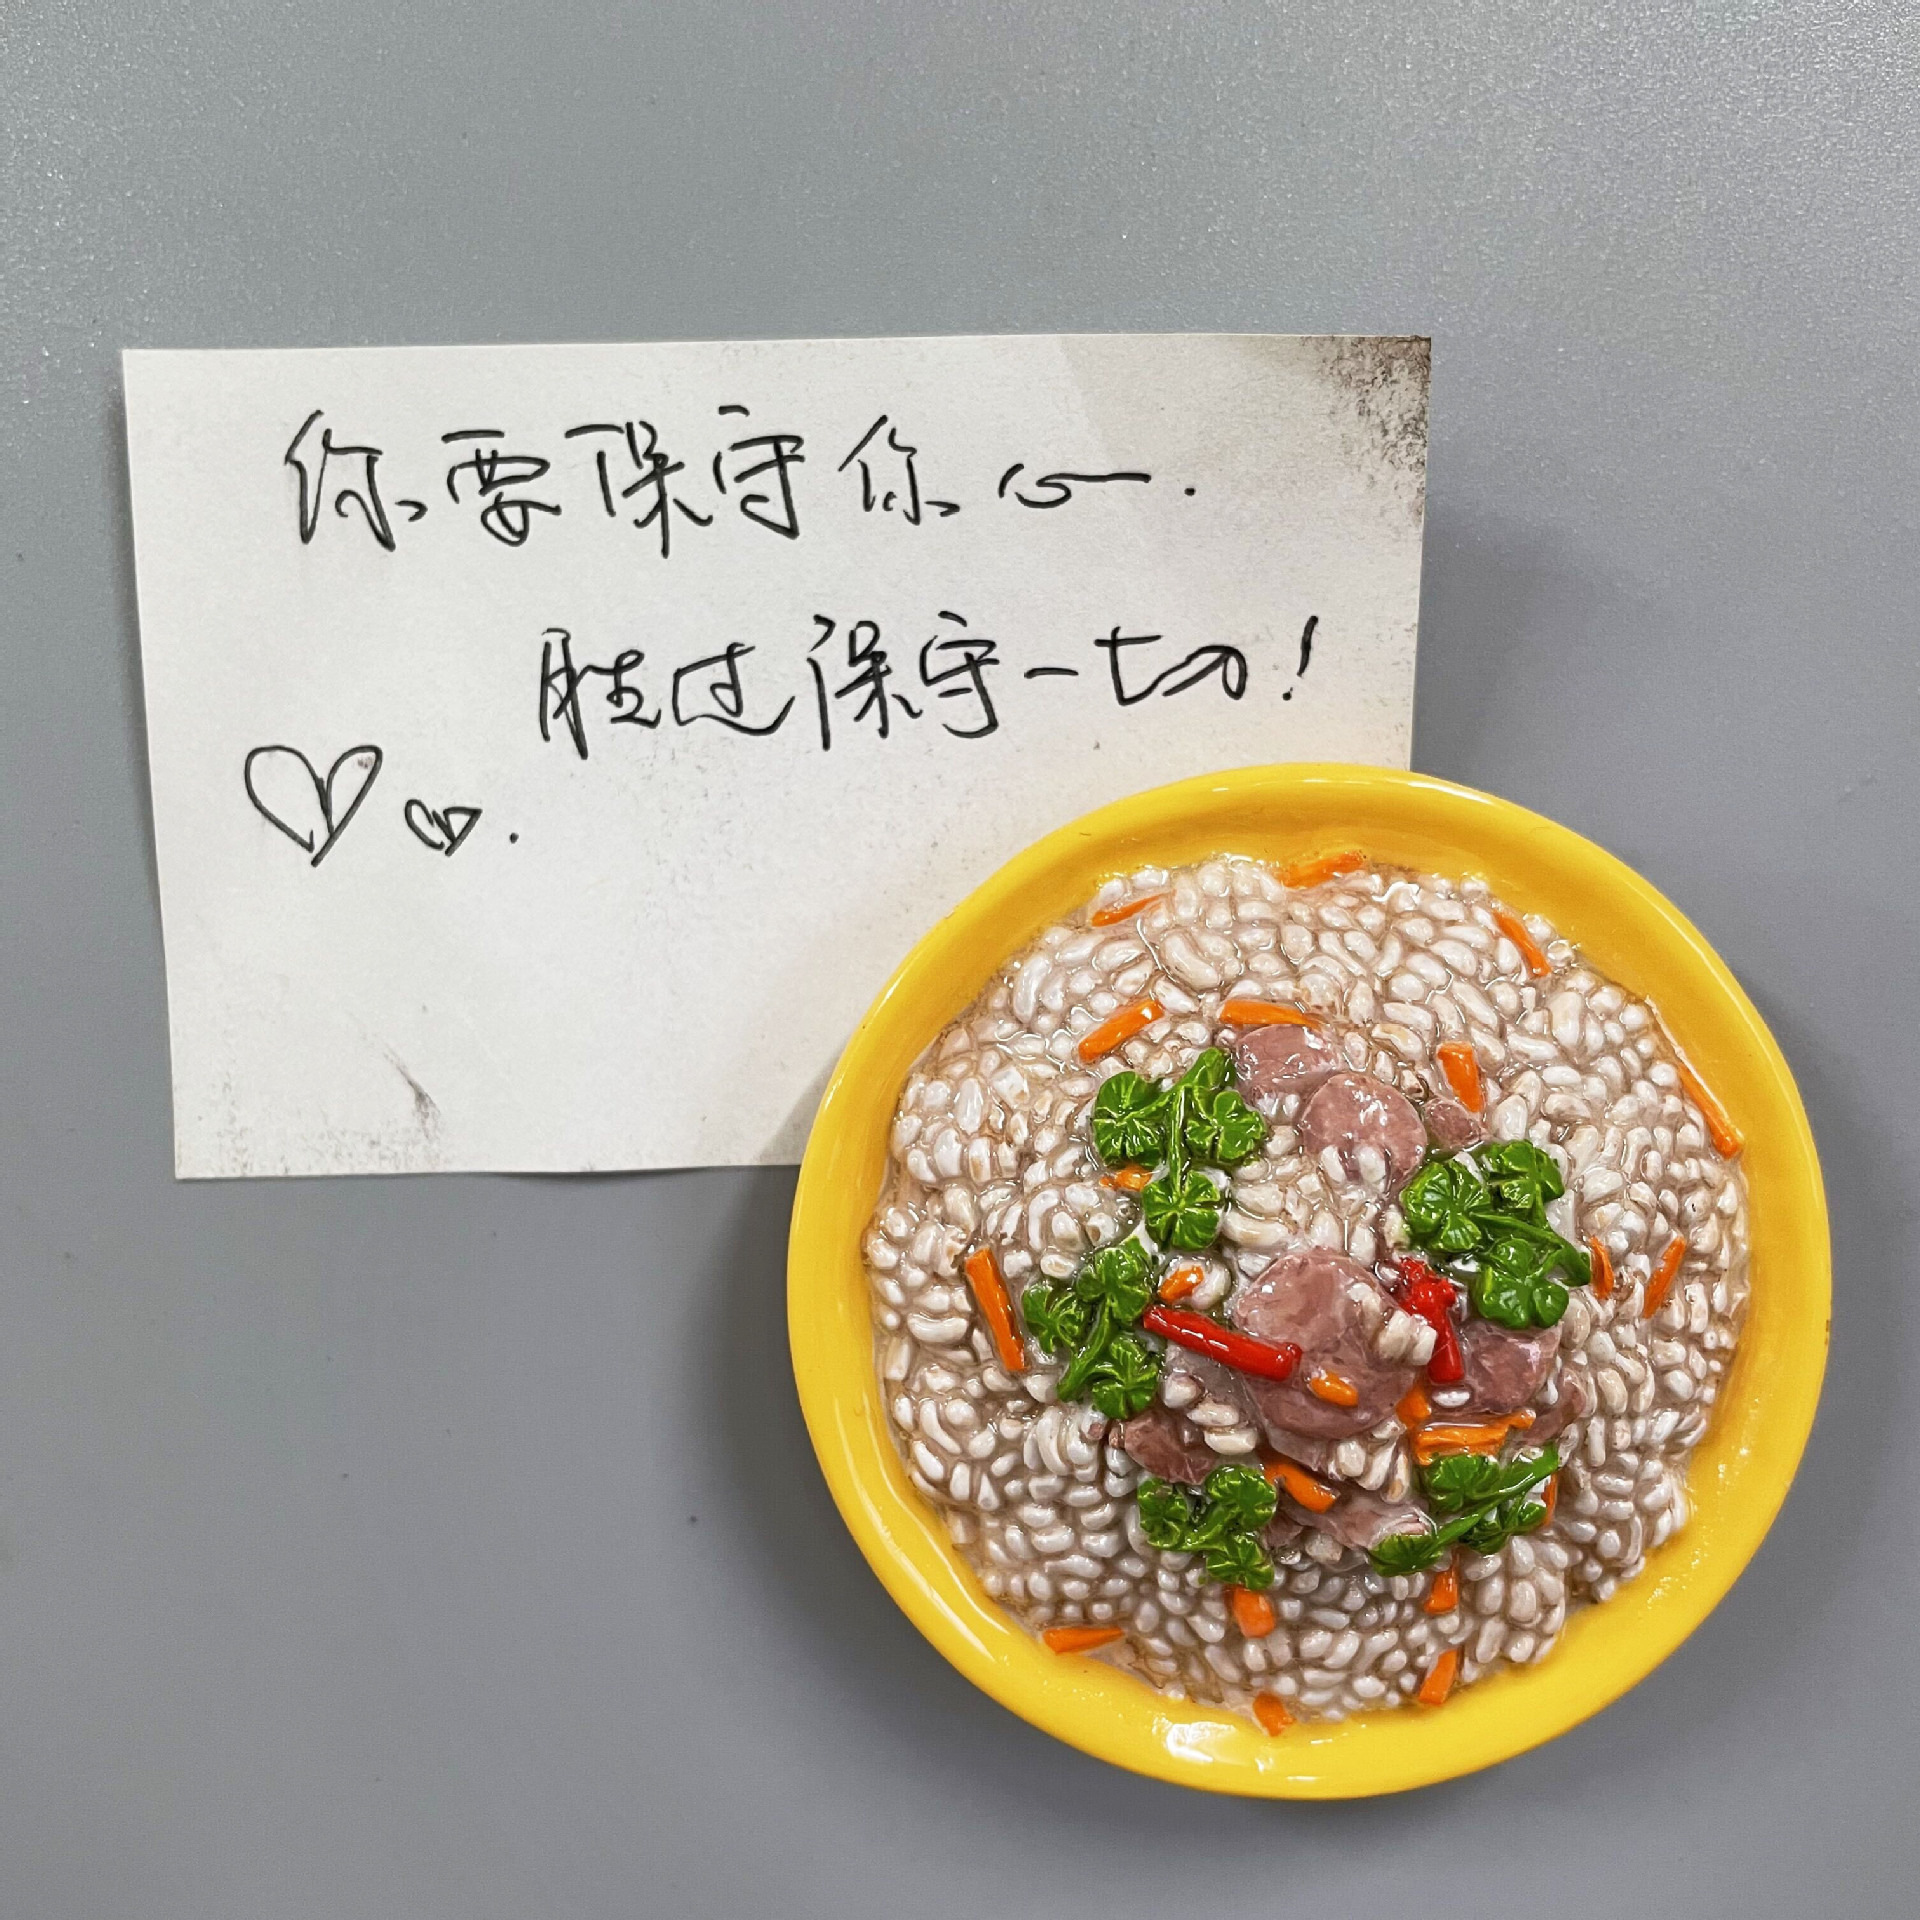 你要保守你心.
胜过保守一切!